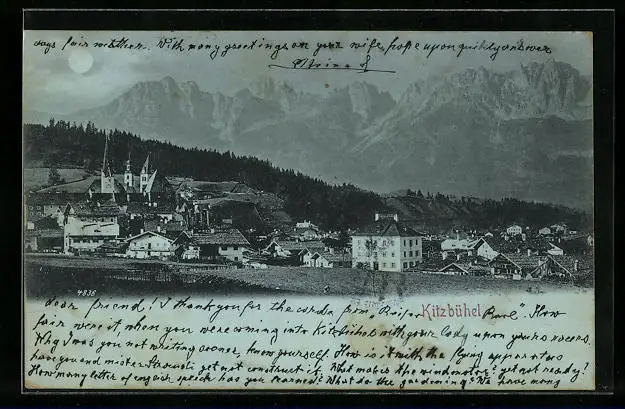 days fair weather. With many greetings on your wife, hope upon quickly answer
4836
Kitzbühel
dear friend! I thank you for the cards from "Kaiser
How
fair were it when you were coming into Kitzbühel with your lady upon yours
Why Imas you not writing sooner, know yourself. How is it with the flying apparatus
have you and mister yet not construct it. What makes the windmotor? yet not ready?
How many letter of english speech has you learned? What do the gardening? We have many